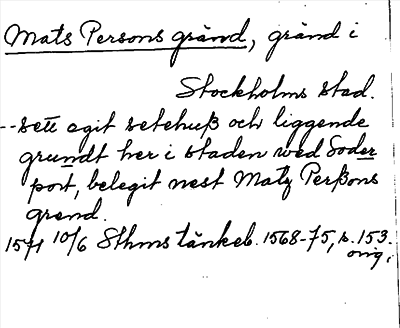 Mats Persons gränd, gränd i
Stockholms stad.
--sett agit setehuß och liggende
grundt her i staden wed Soder
port, belegit nest Matz Perßons
grend.
1571 10/6 Sthms tänkeb. 1568-75, s. 153.
orig.